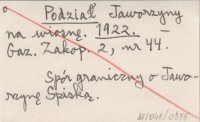 Podział Jaworzyny
na wiosnę. 1922. —
Gaz. Zakop. 2, nr 44. —
Spór graniczny o Jawo-
rzynę Spiską.